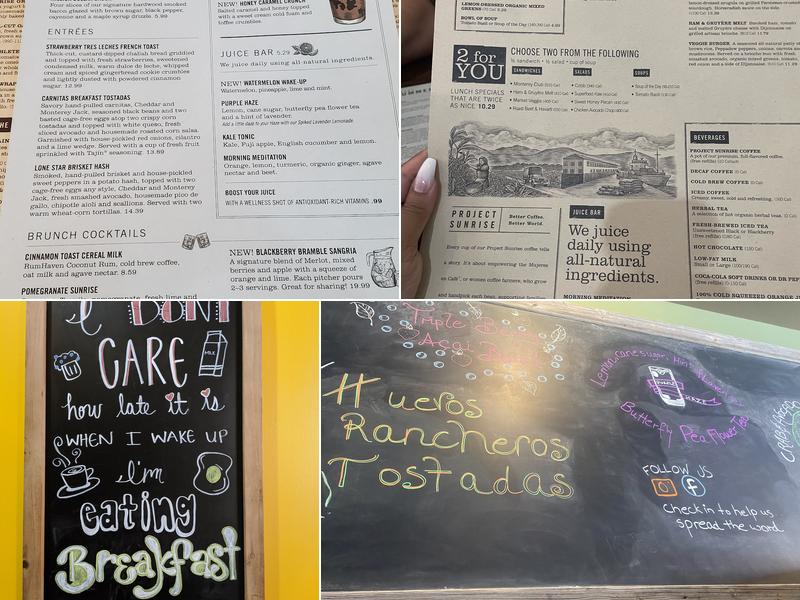 Four slices of our signature hardwood smoked
bacon glazed with brown sugar, black pepper,
cayenne and maple syrup drizzle. 5.99
ENTRÉES
STRAWBERRY TRES LECHES FRENCH TOAST
Thick-cut, custard-dipped challah bread griddled
and topped with fresh strawberries, sweetened
condensed milk, warm dulce de leche, whipped
cream and spiced gingerbread cookie crumbles
and lightly dusted with powdered cinnamon
sugar. 12.99
CARNITAS BREAKFAST TOSTADAS
Savory hand-pulled carnitas, Cheddar and
Monterey Jack, seasoned black beans and two
basted cage-free eggs atop two crispy corn
tostadas and topped with white queso, fresh
sliced avocado and housemade roasted corn salsa.
Garnished with house-pickled red onions, cilantro
and a lime wedge. Served with a cup of fresh fruit
sprinkled with Tajín® seasoning. 13.89
LONE STAR BRISKET HASH
Smoked, hand-pulled brisket and house-pickled
sweet peppers in a potato hash, topped with two
cage-free eggs any style, Cheddar and Monterey
Jack, fresh smashed avocado, housemade pico de
gallo, chipotle aioli and scallions. Served with two
warm wheat-corn tortillas. 14.39
BRUNCH COCKTAILS
CINNAMON TOAST CEREAL MILK
RumHaven Coconut Rum, cold brew coffee,
oat milk and agave nectar. 8.59
POMEGRANATE SUNRISE
NEW! HONEY CARAMEL CRUNCH
Salted caramel and honey topped
with a sweet cream cold foam and
toffee crumbles.
JUICE BAR 5.29
We juice daily using all-natural ingredients.
NEW! WATERMELON WAKE-UP
Watermelon, pineapple, lime and mint.
PURPLE HAZE
Lemon, cane sugar, butterfly pea flower tea
and a hint of lavender.
Add a little daze to your Haze with our Spiked Lavender Lemonade.
KALE TONIC
Kale, Fuji apple, English cucumber and lemon.
MORNING MEDITATION
Orange, lemon, turmeric, organic ginger, agave
nectar and beet.
BOOST YOUR JUICE
WITH A WELLNESS SHOT OF ANTIOXIDANT-RICH VITAMINS .99
NEW! BLACKBERRY BRAMBLE SANGRIA
A signature blend of Merlot, mixed
berries and apple with a squeeze of
orange and lime. Each pitcher pours
2–3 servings. Great for sharing! 19.99
LEMON-DRESSED ORGANIC MIXED
GREENS
BOWL OF SOUP
2 for
YOU
CHOOSE TWO FROM THE FOLLOWING
½ sandwich • ½ salad • cup of soup
LUNCH SPECIALS
THAT ARE TWICE
AS NICE 10.29
SANDWICHES
• Monterey Club
• Ham & Gruyère Melt
• Market Veggie
• Roast Beef & Havarti
SALADS
• Cobb
• Superfood Kale
• Sweet Honey Pecan
• Chicken Avocado Chop
SOUPS
• Soup of the Day
• Tomato Basil
HAM & GRUYÈRE MELT
VEGGIE BURGER
PROJECT
SUNRISE
Better Coffee.
Better World.
Every cup of our Project Sunrise coffee tells
a story. It's about empowering the Mujeres
en Café
or women coffee farmers, who grow
JUICE BAR
We juice
daily using
all-natural
ingredients.
MORNING MEDITATION
BEVERAGES
PROJECT SUNRISE COFFEE
A pot of our premium, full-flavored coffee.
DECAF COFFEE
COLD BREW COFFEE
ICED COFFEE
Creamy, sweet, cold and refreshing.
HERBAL TEA
A selection of hot organic herbal teas.
FRESH-BREWED ICED TEA
Unsweetened Black or Blackberry
HOT CHOCOLATE
LOW-FAT MILK
Small or Large
COCA-COLA SOFT DRINKS OR DR PEP
100% COLD SQUEEZED ORANGE
I DON'T
CARE
MILK
how late it is
WHEN I WAKE UP
I'm
eating
Breakfast
Triple Berry
Acai Bowl
Hueros
Rancheros
Tostadas
Lemon, cane sugar,
PURPLE
HAZE
Butterfly Pea Flower Tea
FOLLOW US
check in to help us
spread the word